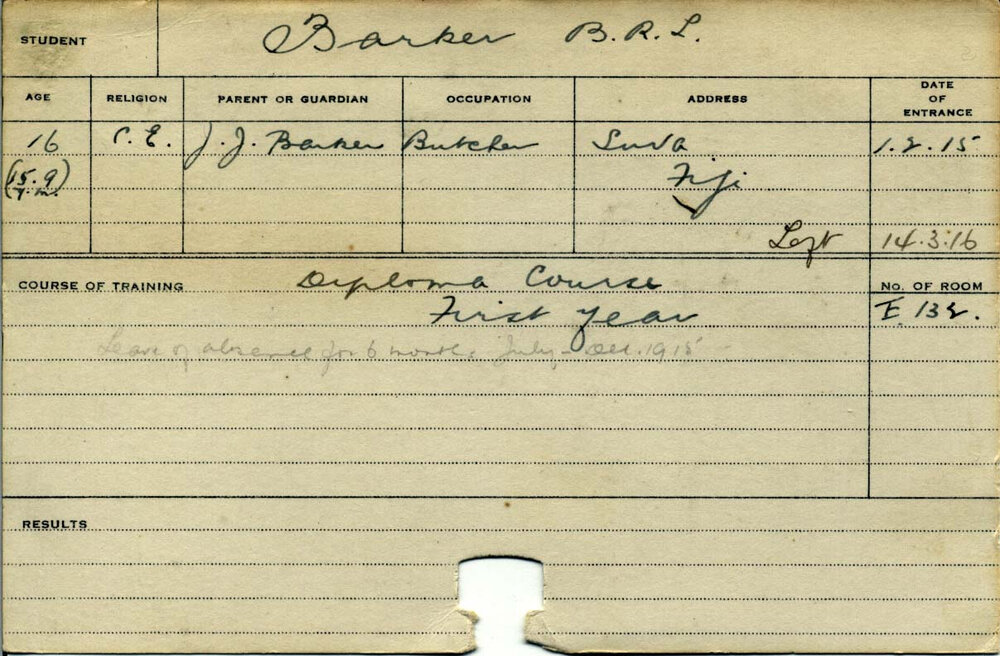 STUDENT Barker B.R.L.
AGE RELIGION PARENT OR GUARDIAN OCCUPATION ADDRESS DATE OF ENTRANCE
16 C.E. J.J. Barker Butcher Suva 1.2.15
(15.9 Fiji
y.m.)
Left 14.3.16
COURSE OF TRAINING Diploma Course No. OF ROOM
First Year E 132.
Leave of absence for 6 months July - Dec. 1915
RESULTS